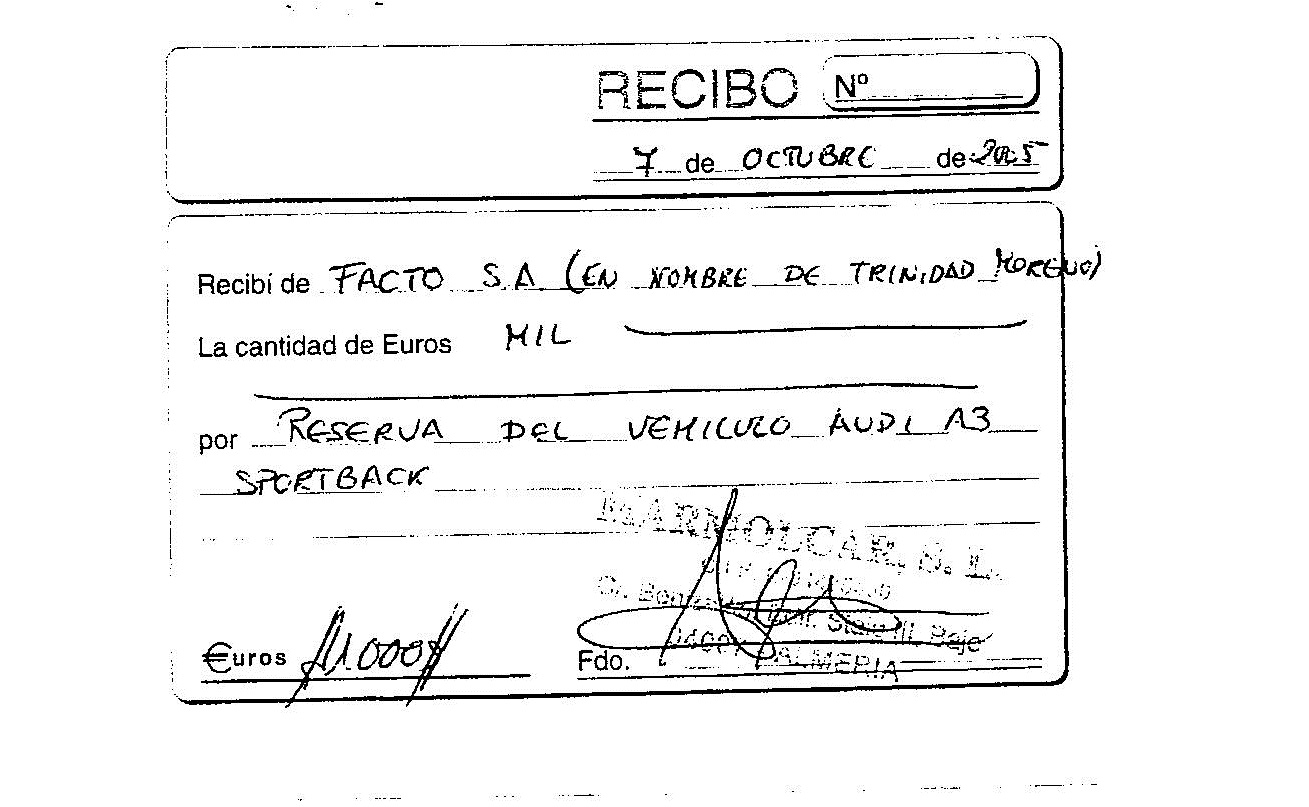 RECIBO Nº
7 de OCTUBRE de 2005
Recibí de FACTO S A (EN NOMBRE DE TRINIDAD MORENO)
La cantidad de Euros MIL
por RESERVA DEL VEHICULO AUDI A3
SPORTBACK
MARMOLCAR, S. L.
€uros //1.000//
Fdo.
ALMERIA